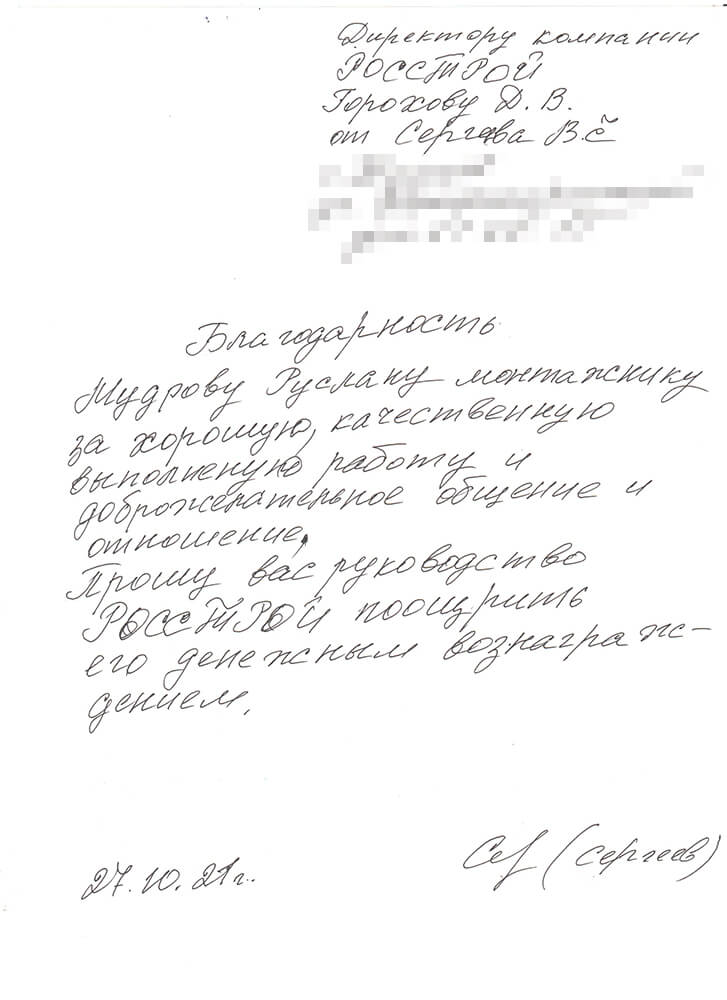 Директору компании
РОССТРОЙ
Горохову Д. В.
от Сергева В.Ё
Благодарность
Мудрову Руслану монтажнику
за хорошую, качественную
выполненую работу и
доброжелательное общение и
отношение.
Прошу вас руководство
РОССТРОЙ поощрить
его денежным вознаграж-
дением.
27.10.21г.
(Сергеев)